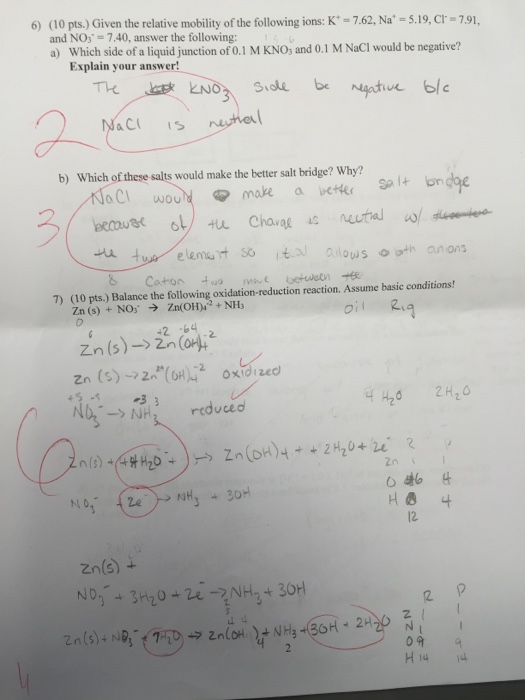 6) (10 pts.) Given the relative mobility of the following ions: K⁺ = 7.62, Na⁺ = 5.19, Cl⁻ = 7.91,
and NO₃⁻ = 7.40, answer the following:
a) Which side of a liquid junction of 0.1 M KNO₃ and 0.1 M NaCl would be negative?
Explain your answer!
The KNO₃ side be negative b/c
NaCl is neutral
2
b) Which of these salts would make the better salt bridge? Why?
NaCl would make a better salt bridge
because of the charge is neutral w/
the two element so it allows both anions
& Cation two move between
3
7) (10 pts.) Balance the following oxidation-reduction reaction. Assume basic conditions!
Zn (s) + NO₃⁻ → Zn(OH)₄⁻² + NH₃
Oil Rig
Zn(s) → Zn(OH)₄⁻²
Zn (s) → Zn²⁺(OH)₄⁻² oxidized
NO₃⁻ → NH₃ reduced
4 H₂O 2H₂O
6
Zn(s) + 4H₂O + → Zn(OH)₄ + 2H₂O + 2e⁻
NO₃⁻ + 2e⁻ → NH₃ + 3OH
Zn(s) +
NO₃⁻ + 3H₂O + 2e⁻ → NH₃ + 3OH
Zn(s) + NO₃⁻ + 7H₂O → Zn(OH)₄ + NH₃ + 3OH + 2H₂O
R P
Z 1 1
N 1 1
O 9 9
H 14 14
4